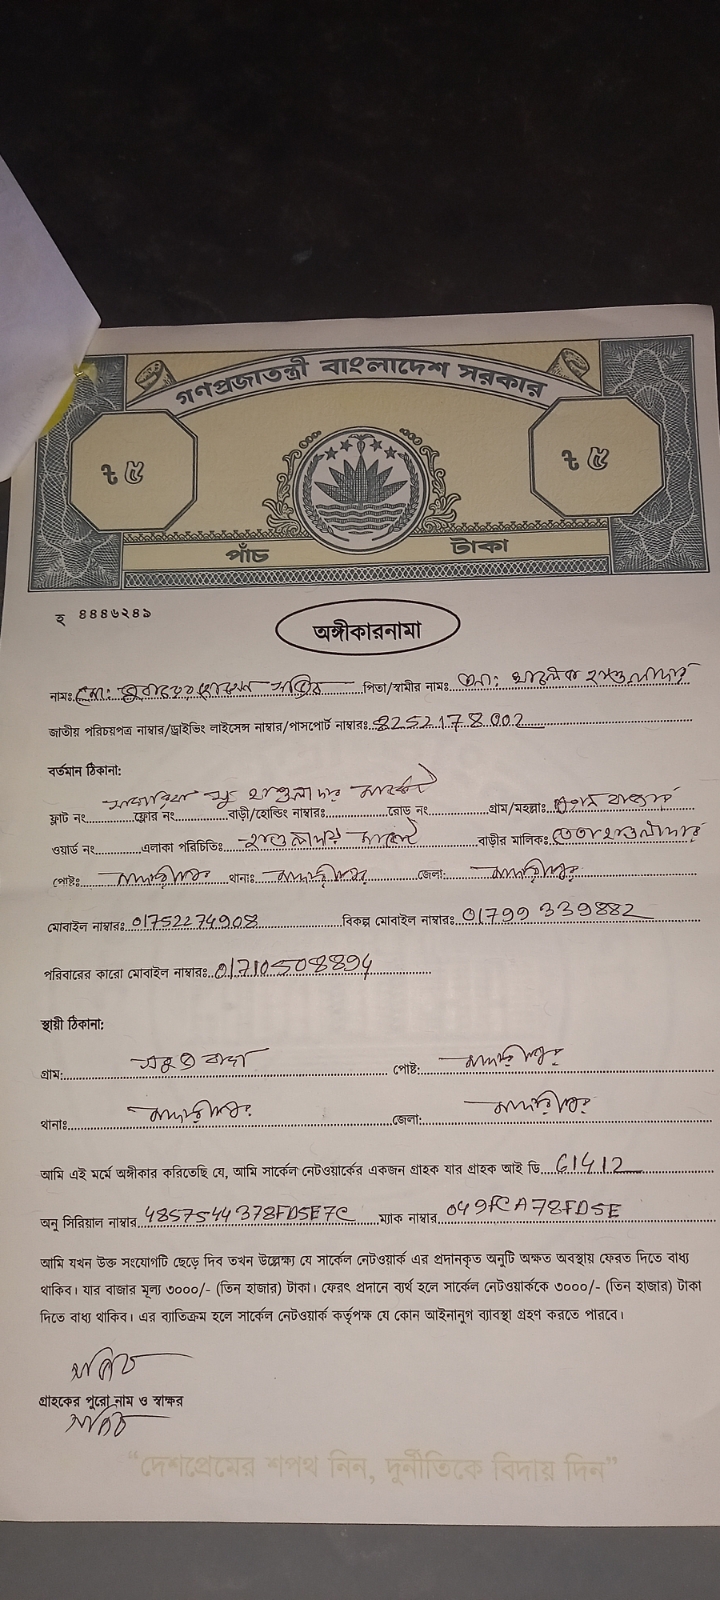 গণপ্রজাতন্ত্রী বাংলাদেশ সরকার
৳ ৫ ৳ ৫
পাঁচ টাকা
হ ৪৪৪৬২৪৯
অঙ্গীকারনামা
নামঃ মো: পিতা/স্বামীর নামঃ মো: হাওলাদার
জাতীয় পরিচয়পত্র নাম্বার/ড্রাইভিং লাইসেন্স নাম্বার/পাসপোর্ট নাম্বারঃ 8252178002
বর্তমান ঠিকানা:
ফ্লাট নং ফ্লোর নং বাড়ী/হোল্ডিং নাম্বারঃ রোড নং গ্রাম/মহল্লাঃ
ওয়ার্ড নং এলাকা পরিচিতিঃ হাওলাদার মার্কেট বাড়ীর মালিকঃ হাওলাদার
পোষ্টঃ মাদারীপুর থানাঃ মাদারীপুর জেলা: মাদারীপুর
মোবাইল নাম্বারঃ 01752274908 বিকল্প মোবাইল নাম্বারঃ 01799 339882
পরিবারের কারো মোবাইল নাম্বারঃ 01710508894
স্থায়ী ঠিকানা:
গ্রাম: পোষ্ট: মাদারীপুর
থানাঃ মাদারীপুর জেলা: মাদারীপুর
আমি এই মর্মে অঙ্গীকার করিতেছি যে, আমি সার্কেল নেটওয়ার্কের একজন গ্রাহক যার গ্রাহক আই ডি 61412
অনু সিরিয়াল নাম্বার 4857544378FD5E7C ম্যাক নাম্বার 049FCA78FD5E
আমি যখন উক্ত সংযোগটি ছেড়ে দিব তখন উল্লেক্ষ্য যে সার্কেল নেটওয়ার্ক এর প্রদানকৃত অনুটি অক্ষত অবস্থায় ফেরত দিতে বাধ্য
থাকিব। যার বাজার মূল্য ৩০০০/- (তিন হাজার) টাকা। ফেরৎ প্রদানে ব্যর্থ হলে সার্কেল নেটওয়ার্ককে ৩০০০/- (তিন হাজার) টাকা
দিতে বাধ্য থাকিব। এর ব্যাতিক্রম হলে সার্কেল নেটওয়ার্ক কর্তৃপক্ষ যে কোন আইনানুগ ব্যাবস্থা গ্রহণ করতে পারবে।
গ্রাহকের পুরো নাম ও স্বাক্ষর
“দেশপ্রেমের শপথ নিন, দুর্নীতিকে বিদায় দিন”